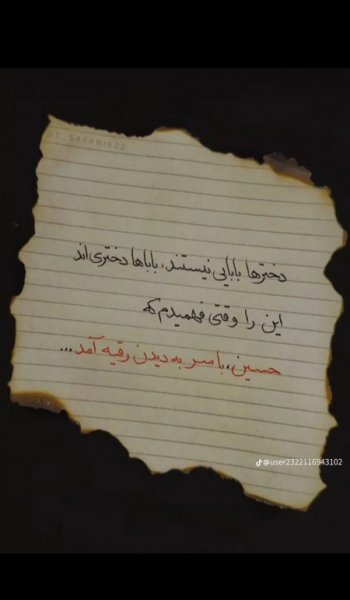 SAFARI622
دخترها بابایی نیستند، باباها دختری‌اند
این را وقتی فهمیدم که
حسین، با سر به دیدن رقیه آمد...
@user2322116943102